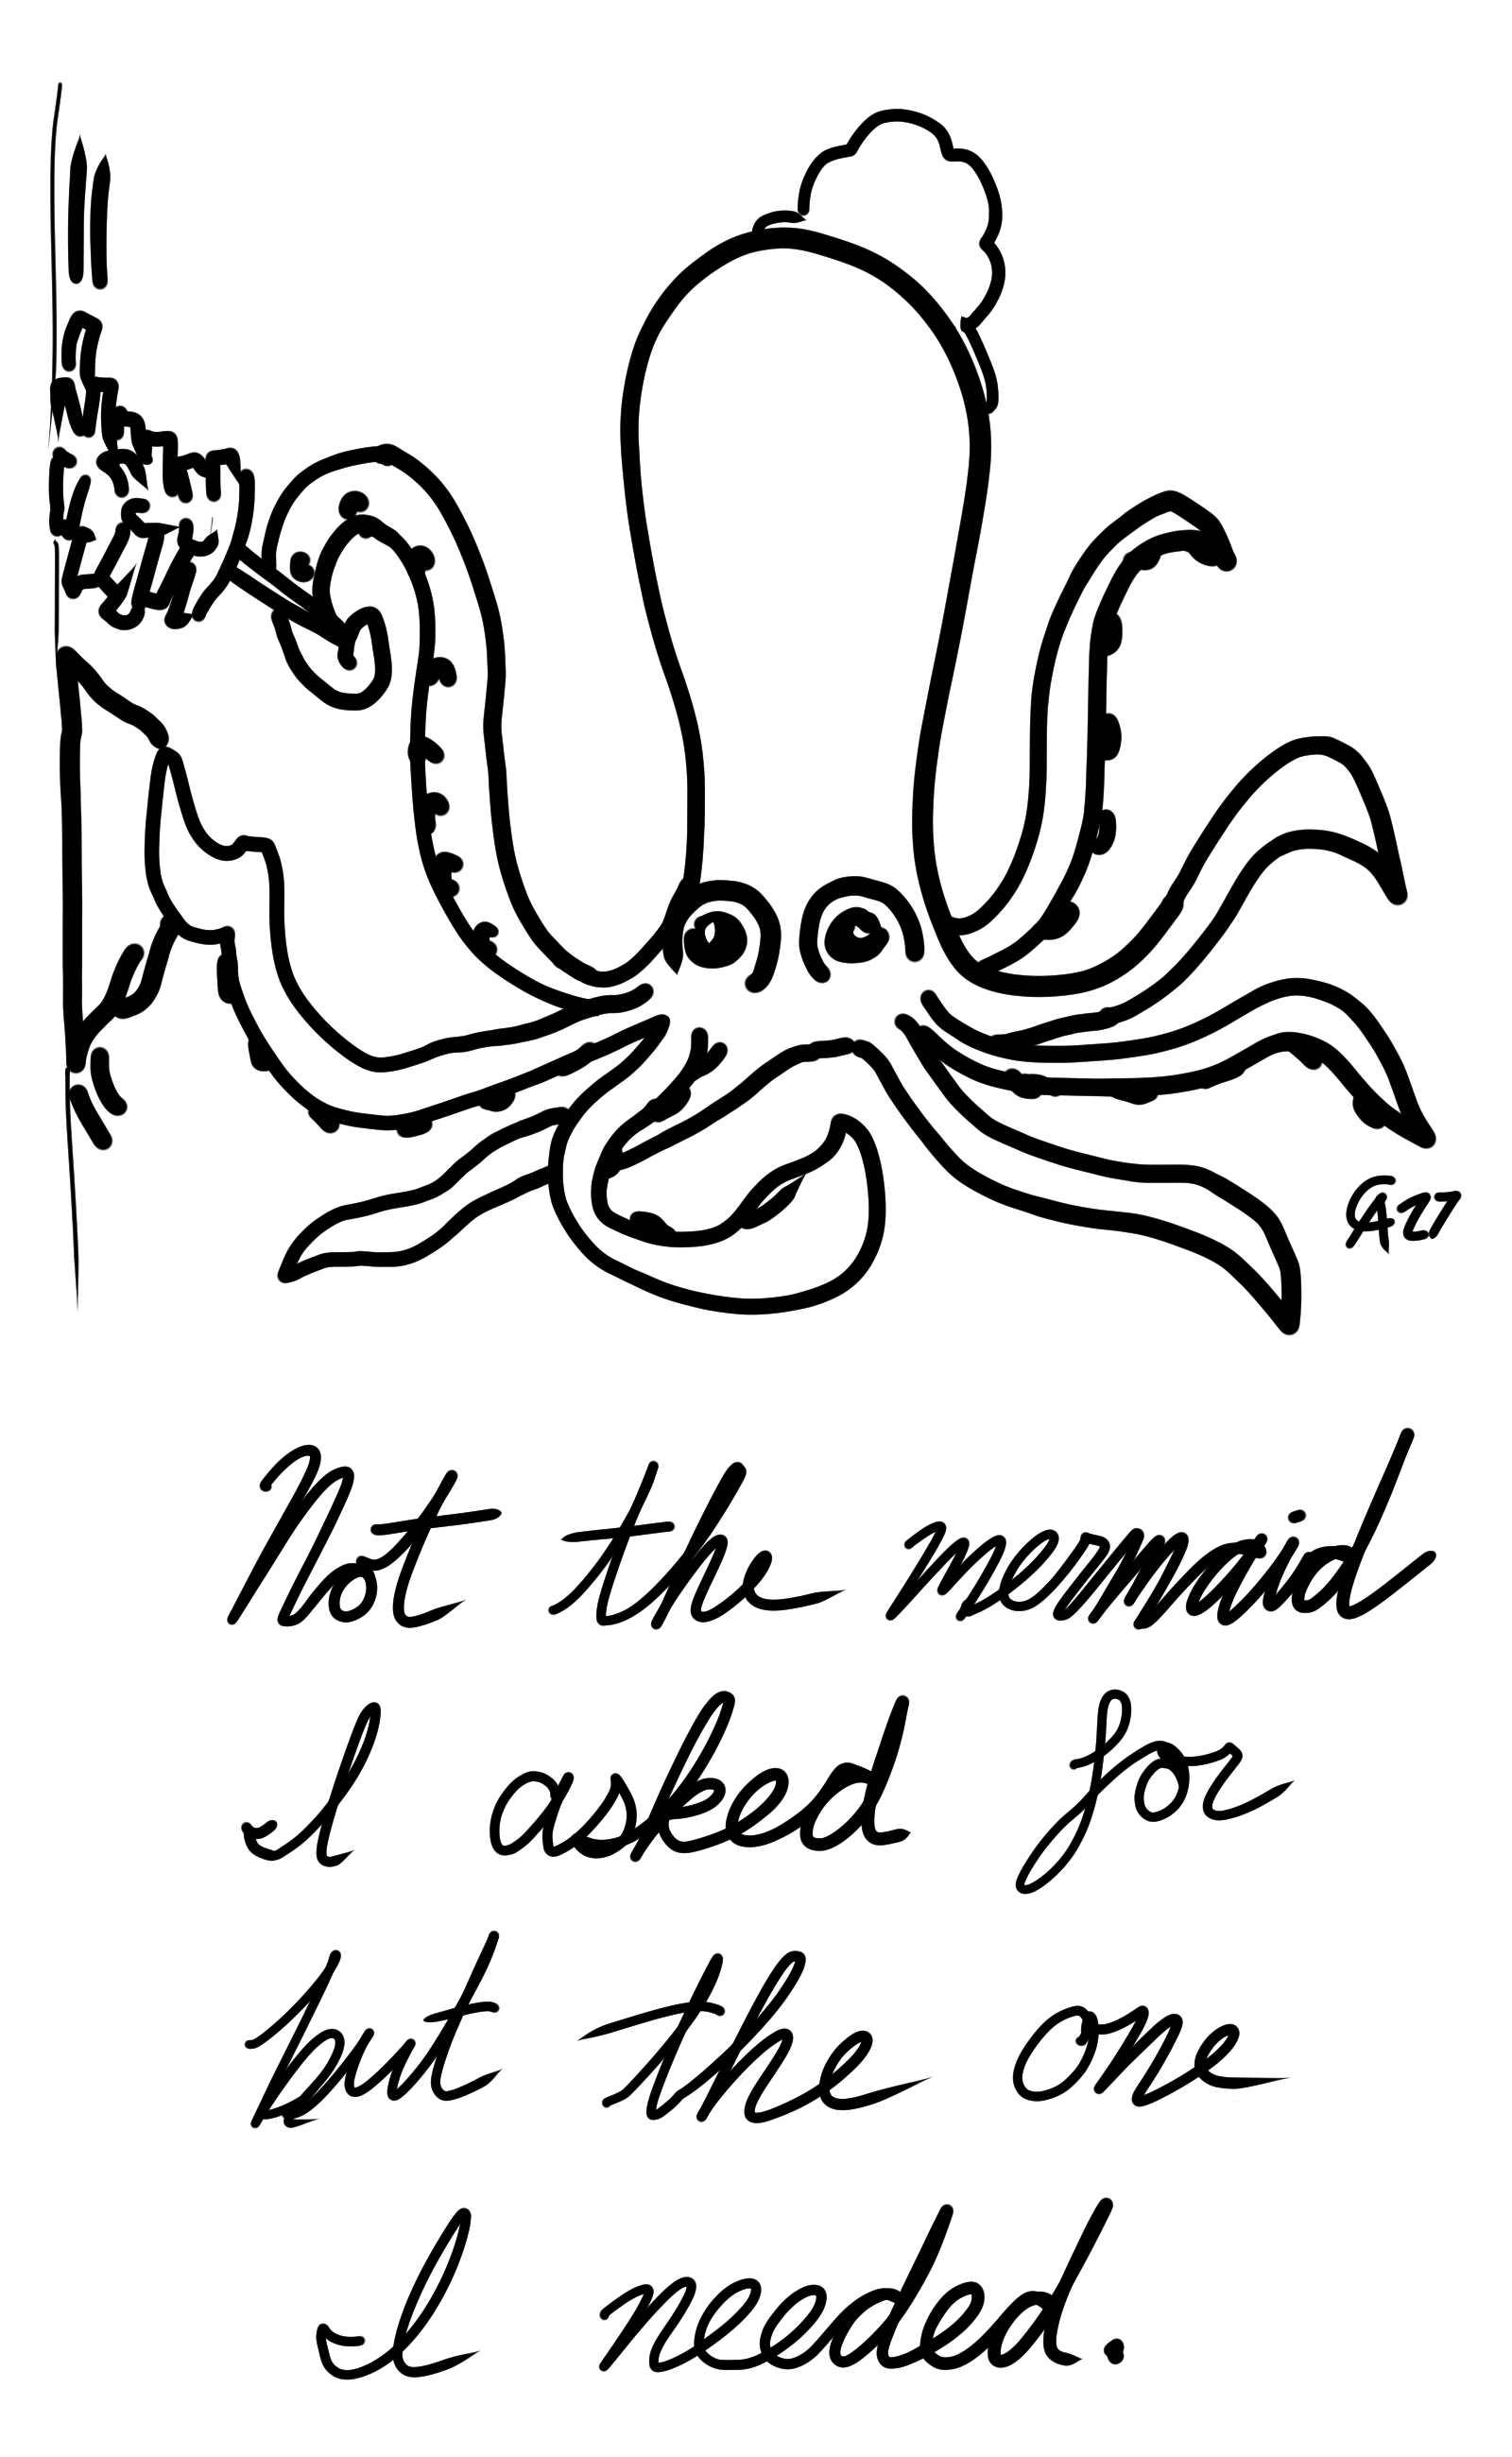 Not the mermaid
I asked for
but the one
I needed.